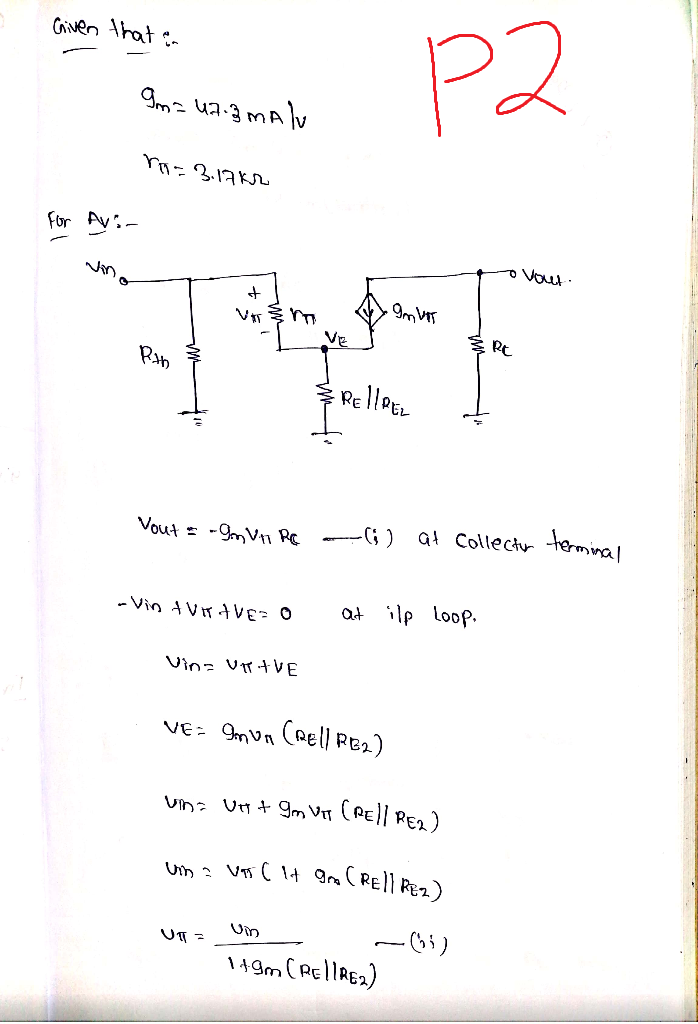 Given that :-
P2
gm = 47.3 mA/v
rπ = 3.17KΩ
For Av :-
Vin
Vout.
+
Vπ
rπ
gmVπ
-
VE
Rth
RC
RE||RE2
Vout = -gmVπ RC —(i) at Collector terminal
-Vin + Vπ + VE = 0 at i/p Loop.
Vin = Vπ + VE
VE = gmVπ (RE||RE2)
Vin = Vπ + gm Vπ (RE||RE2)
Vin = Vπ ( 1+ gm (RE||RE2)
Vπ = Vin —(ii)
1+gm (RE||RE2)